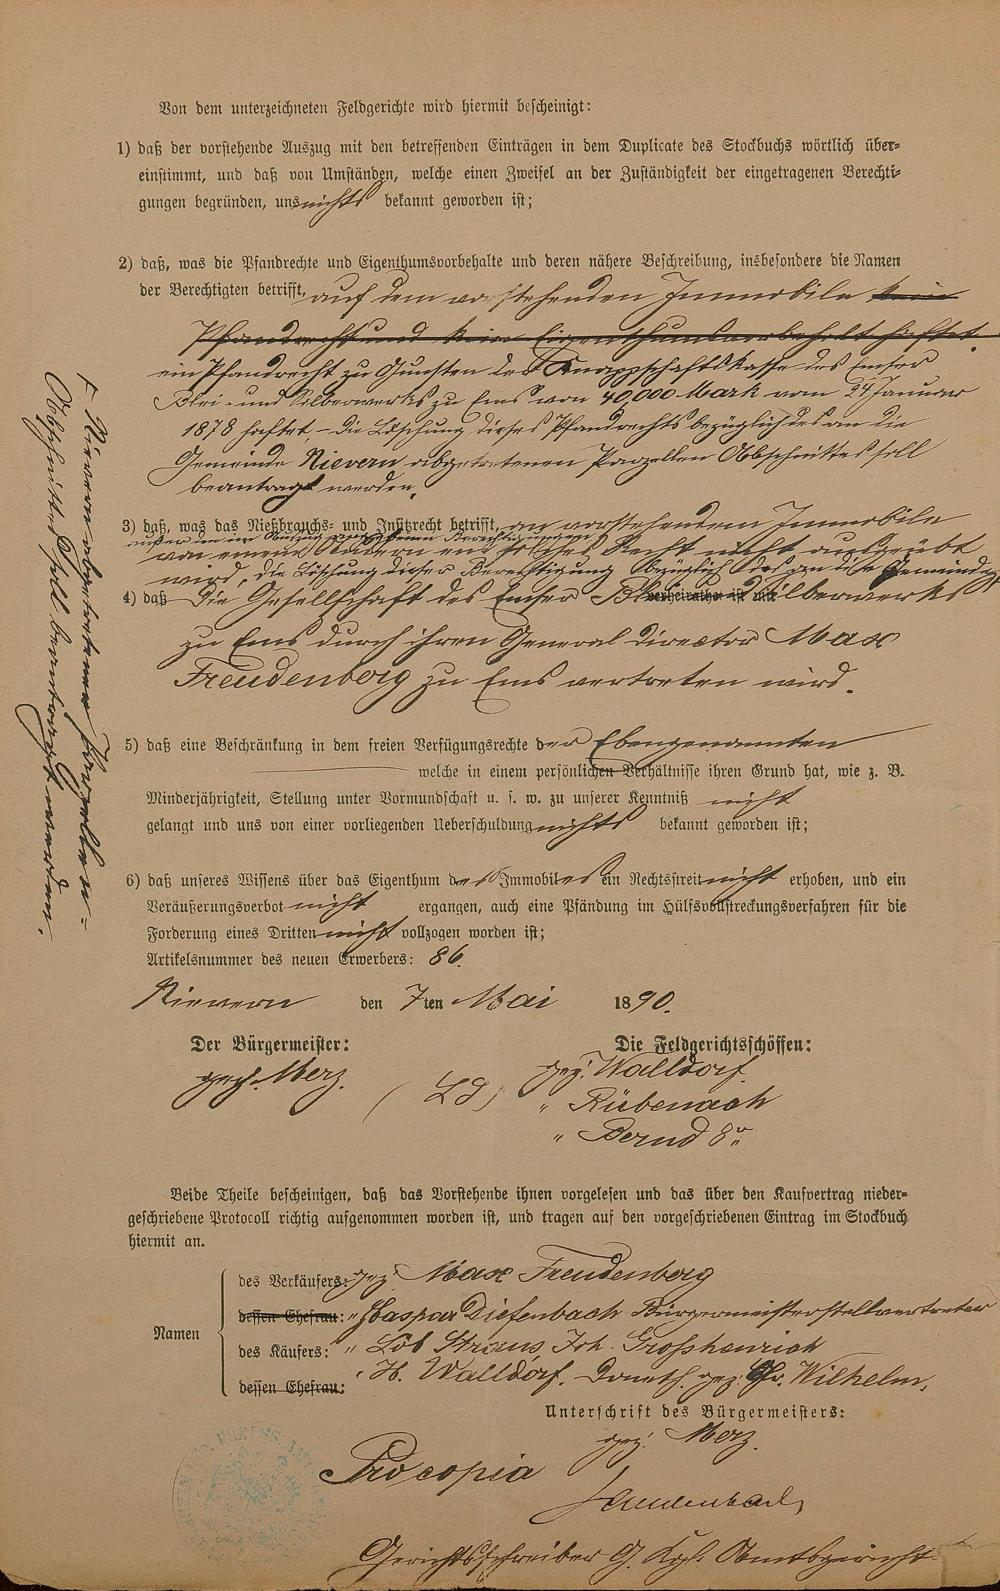 Von dem unterzeichneten Feldgerichte wird hiermit bescheinigt:
1) daß der vorstehende Auszug mit den betreffenden Einträgen in dem Duplicate des Stockbuchs wörtlich über-
einstimmt, und daß von Umständen, welche einen Zweifel an der Zuständigkeit der eingetragenen Berechti-
gungen begründen, uns nichts bekannt geworden ist;
2) daß, was die Pfandrechte und Eigenthumsvorbehalte und deren nähere Beschreibung, insbesondere die Namen
der Berechtigten betrifft, auf dem vorstehenden Immobile kein
Pfandrecht und kein Eigenthumsvorbehalt haftet.
ein Pfandrecht zu Gunsten der Knappschaftskasse des Emser
Blei- und Silberwerks zu Ems von 40,000 Mark vom 24 Januar
1878 haftet – Die Löschung dieses Pfandrechts bezüglich des an die
Gemeinde Nievern abgetretenen Parzellen Abschnittes soll
beantragt werden.
3) daß, was das Nießbrauchs- und Insitzrecht betrifft, an vorstehendem Immobile
außer den im Auszug
von einem Andern ein solches Recht nicht ausgeübt
wird, die Löschung dieser Berechtigung bezüglich des an die Gemeinde
4) daß Die Gesellschaft des Emser Blei- und Silberwerks
verheirathet ist mit
zu Ems durch ihren General Director Max
Freudenberg zu Ems vertreten wird.
Nievern abgetretenen Parzellen-
Abschnittes soll beantragt werden.
5) daß eine Beschränkung in dem freien Verfügungsrechte der Ebengenannten
welche in einem persönlichen Verhältnisse ihren Grund hat, wie z. B.
Minderjährigkeit, Stellung unter Vormundschaft u. s. w. zu unserer Kenntniß nicht
gelangt und uns von einer vorliegenden Ueberschuldung nichts bekannt geworden ist;
6) daß unseres Wissens über das Eigenthum des Immobiles ein Rechtsstreit nicht erhoben, und ein
Veräußerungsverbot nicht ergangen, auch eine Pfändung im Hülfsvollstreckungsverfahren für die
Forderung eines Dritten nicht vollzogen worden ist;
Artikelsnummer des neuen Erwerbers: 86.
Nievern den 7ten Mai 1890.
Der Bürgermeister: Die Feldgerichtsschöffen:
gez. Merz. (LS) gez. Walldorf.
" Rübenach
" Bernd
Beide Theile bescheinigen, daß das Vorstehende ihnen vorgelesen und das über den Kaufvertrag nieder-
geschriebene Protocoll richtig aufgenommen worden ist, und tragen auf den vorgeschriebenen Eintrag im Stockbuch
hiermit an.
Namen
des Verkäufers: gez. Max Freudenberg
dessen Ehefrau: " Caspar Diefenbach Bürgermeisterstellvertreter
des Käufers: " Löb Straus, Joh. Grosshenrich
dessen Ehefrau: " H. Walldorf. gez. Wilhelm.
Unterschrift des Bürgermeisters:
gez. Merz.
Pro copia
Gerichtsschreiber G. Kgl. Amtsgericht